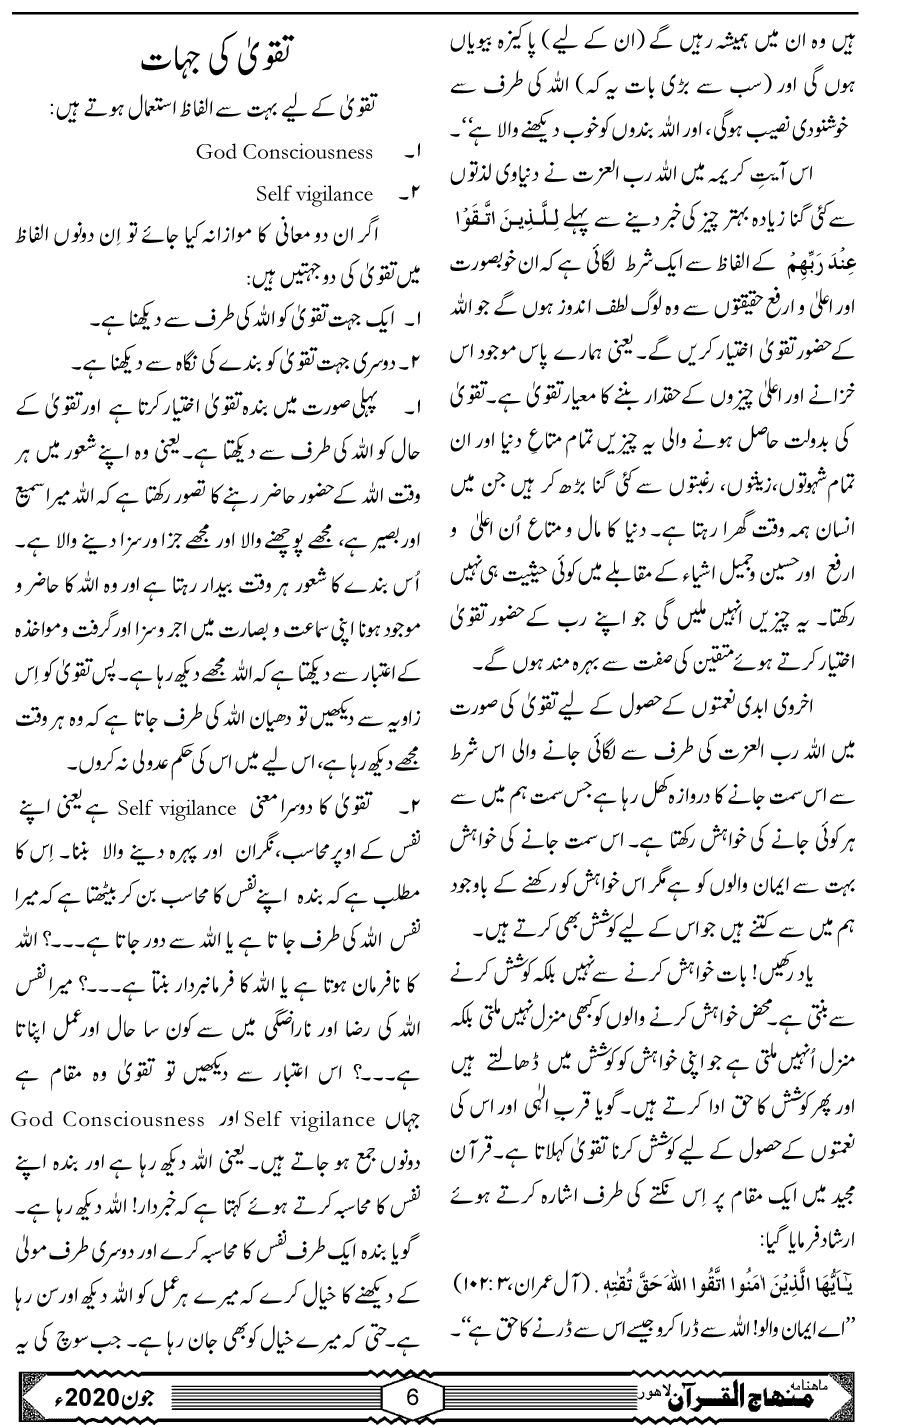 ہیں وہ ان میں ہمیشہ رہیں گے (ان کے لیے) پاکیزہ بیویاں
ہوں گی اور (سب سے بڑی بات یہ کہ) اللہ کی طرف سے
خوشنودی نصیب ہوگی، اور اللہ بندوں کو خوب دیکھنے والا ہے‘‘۔
اس آیتِ کریمہ میں اللہ رب العزت نے دنیاوی لذتوں
سے کئی گنا زیادہ بہتر چیز کی خبر دینے سے پہلے لِلَّذِیْنَ اتَّقَوْا
عِنْدَ رَبِّهِمْ کے الفاظ سے ایک شرط لگائی ہے کہ ان خوبصورت
اور اعلیٰ و ارفع حقیقتوں سے وہ لوگ لطف اندوز ہوں گے جو اللہ
کے حضور تقویٰ اختیار کریں گے۔ یعنی ہمارے پاس موجود اس
خزانے اور اعلیٰ چیزوں کے حقدار بننے کا معیار تقویٰ ہے۔ تقویٰ
کی بدولت حاصل ہونے والی یہ چیزیں تمام متاعِ دنیا اور ان
تمام شہوتوں، زینتوں، رغبتوں سے کئی گنا بڑھ کر ہیں جن میں
انسان ہمہ وقت گھرا رہتا ہے۔ دنیا کا مال و متاع اُن اعلیٰ و
ارفع اور حسین و جمیل اشیاء کے مقابلے میں کوئی حیثیت ہی نہیں
رکھتا۔ یہ چیزیں انہیں ملیں گی جو اپنے رب کے حضور تقویٰ
اختیار کرتے ہوئے متقین کی صفت سے بہرہ مند ہوں گے۔
اخروی ابدی نعمتوں کے حصول کے لیے تقویٰ کی صورت
میں اللہ رب العزت کی طرف سے لگائی جانے والی اس شرط
سے اس سمت جانے کا دروازہ کھل رہا ہے جس سمت ہم میں سے
ہر کوئی جانے کی خواہش رکھتا ہے۔ اس سمت جانے کی خواہش
بہت سے ایمان والوں کو ہے مگر اس خواہش کو رکھنے کے باوجود
ہم میں سے کتنے ہیں جو اس کے لیے کوشش بھی کرتے ہیں۔
یاد رکھیں! بات خواہش کرنے سے نہیں بلکہ کوشش کرنے
سے بنتی ہے۔ محض خواہش کرنے والوں کو کبھی منزل نہیں ملتی بلکہ
منزل اُنہیں ملتی ہے جو اپنی خواہش کو کوشش میں ڈھالتے ہیں
اور پھر کوشش کا حق ادا کرتے ہیں۔ گویا قربِ الٰہی اور اس کی
نعمتوں کے حصول کے لیے کوشش کرنا تقویٰ کہلاتا ہے۔ قرآن
مجید میں ایک مقام پر اِس نکتے کی طرف اشارہ کرتے ہوئے
ارشاد فرمایا گیا:
یٰٓـاَیُّهَا الَّذِیْنَ اٰمَنُوا اتَّقُوا اللهَ حَقَّ تُقٰتِهٖ. (آل عمران،۳: ۱۰۲)
’’اے ایمان والو! اللہ سے ڈرا کرو جیسے اس سے ڈرنے کا حق ہے‘‘۔
تقویٰ کی جہات
تقویٰ کے لیے بہت سے الفاظ استعمال ہوتے ہیں:
۱۔ God Consciousness
۲۔ Self vigilance
اگر ان دو معانی کا موازانہ کیا جائے تو اِن دونوں الفاظ
میں تقویٰ کی دو جہتیں ہیں:
۱۔ ایک جہت تقویٰ کو اللہ کی طرف سے دیکھنا ہے۔
۲۔ دوسری جہت تقویٰ کو بندے کی نگاہ سے دیکھنا ہے۔
۱۔ پہلی صورت میں بندہ تقویٰ اختیار کرتا ہے اور تقویٰ کے
حال کو اللہ کی طرف سے دیکھتا ہے۔ یعنی وہ اپنے شعور میں ہر
وقت اللہ کے حضور حاضر رہنے کا تصور رکھتا ہے کہ اللہ میرا سمیع
اور بصیر ہے، مجھے پوچھنے والا اور مجھے جزا ور سزا دینے والا ہے۔
اُس بندے کا شعور ہر وقت بیدار رہتا ہے اور وہ اللہ کا حاضر و
موجود ہونا اپنی سماعت و بصارت میں اجر و سزا اور گرفت و مواخذہ
کے اعتبار سے دیکھتا ہے کہ اللہ مجھے دیکھ رہا ہے۔ پس تقویٰ کو اِس
زاویہ سے دیکھیں تو دھیان اللہ کی طرف جاتا ہے کہ وہ ہر وقت
مجھے دیکھ رہا ہے، اس لیے میں اس کی حکم عدولی نہ کروں۔
۲۔ تقویٰ کا دوسرا معنی Self vigilance ہے یعنی اپنے
نفس کے اوپر محاسب، نگران اور پہرہ دینے والا بننا۔ اِس کا
مطلب ہے کہ بندہ اپنے نفس کا محاسب بن کر بیٹھتا ہے کہ میرا
نفس اللہ کی طرف جاتا ہے یا اللہ سے دور جاتا ہے۔۔۔؟ اللہ
کا نافرمان ہوتا ہے یا اللہ کا فرمانبردار بنتا ہے۔۔۔؟ میرا نفس
اللہ کی رضا اور ناراضگی میں سے کون سا حال اور عمل اپناتا
ہے۔۔۔؟ اس اعتبار سے دیکھیں تو تقویٰ وہ مقام ہے
جہاں Self vigilance اور God Consciousness
دونوں جمع ہو جاتے ہیں۔ یعنی اللہ دیکھ رہا ہے اور بندہ اپنے
نفس کا محاسبہ کرتے ہوئے کہتا ہے کہ خبردار! اللہ دیکھ رہا ہے۔
گویا بندہ ایک طرف نفس کا محاسبہ کرے اور دوسری طرف مولیٰ
کے دیکھنے کا خیال کرے کہ میرے ہر عمل کو اللہ دیکھ اور سن رہا
ہے۔ حتی کہ میرے خیال کو بھی جان رہا ہے۔ جب سوچ کی یہ
ماہنامہ منہاج القرآن لاہور
6
جون 2020ء